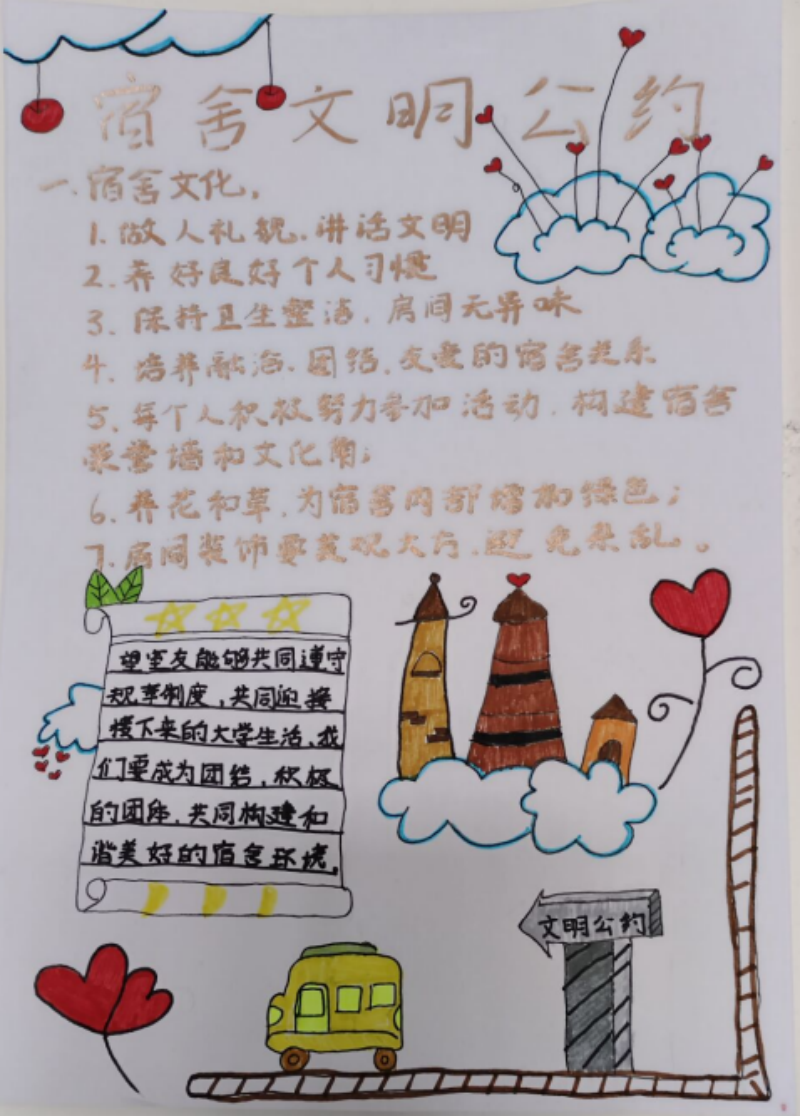 宿舍文明公约
一.宿舍文化.
1.做人礼貌.讲话文明
2.养好良好个人习惯
3.保持卫生整洁.房间无异味
4.培养融洽.团结.友爱的宿舍关系
5.每个人积极努力参加活动.构建宿舍
荣誉墙和文化角;
6.养花和草.为宿舍内部增加绿色;
7.房间装饰要美观大方.避免杂乱。
望室友能够共同遵守
规章制度,共同迎接
接下来的大学生活,我
们要成为团结,积极
的团体.共同构建和
谐美好的宿舍环境.
文明公约